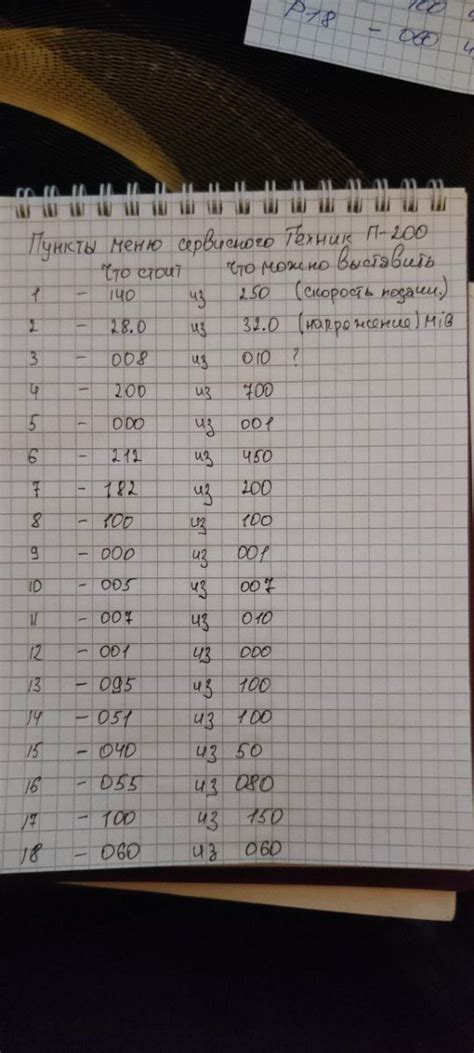 100
P18 - 060
Пункты меню сервисного Техник П-200
Что стоит что можно выставить
1 - 140 из 250 (скорость подачи)
2 - 28.0 из 32.0 (напряжение) MiG
3 - 008 из 010 ?
4 - 200 из 700
5 - 000 из 001
6 - 212 из 450
7 - 182 из 200
8 - 100 из 100
9 - 000 из 001
10 - 005 из 007
11 - 007 из 010
12 - 001 из 000
13 - 095 из 100
14 - 051 из 100
15 - 040 из 50
16 - 055 из 080
17 - 100 из 150
18 - 060 из 060